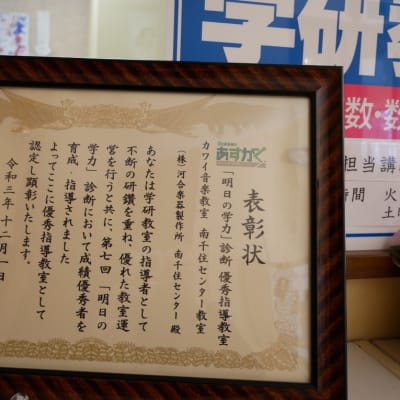 表彰状
Gakken
あすがく
「明日の学力」診断 優秀指導教室
カワイ音楽教室 南千住センター教室
(株)河合楽器製作所 南千住センター 殿
あなたは学研教室の指導者として
不断の研鑽を重ね、優れた教室運
営を行うと共に、第七回「明日の
学力」診断において成績優秀者を
育成・指導されました
よってここに優秀指導教室として
認定し顕彰いたします。
令和三年十二月一日
学研教
数・数
担当講
時間 火
土曜